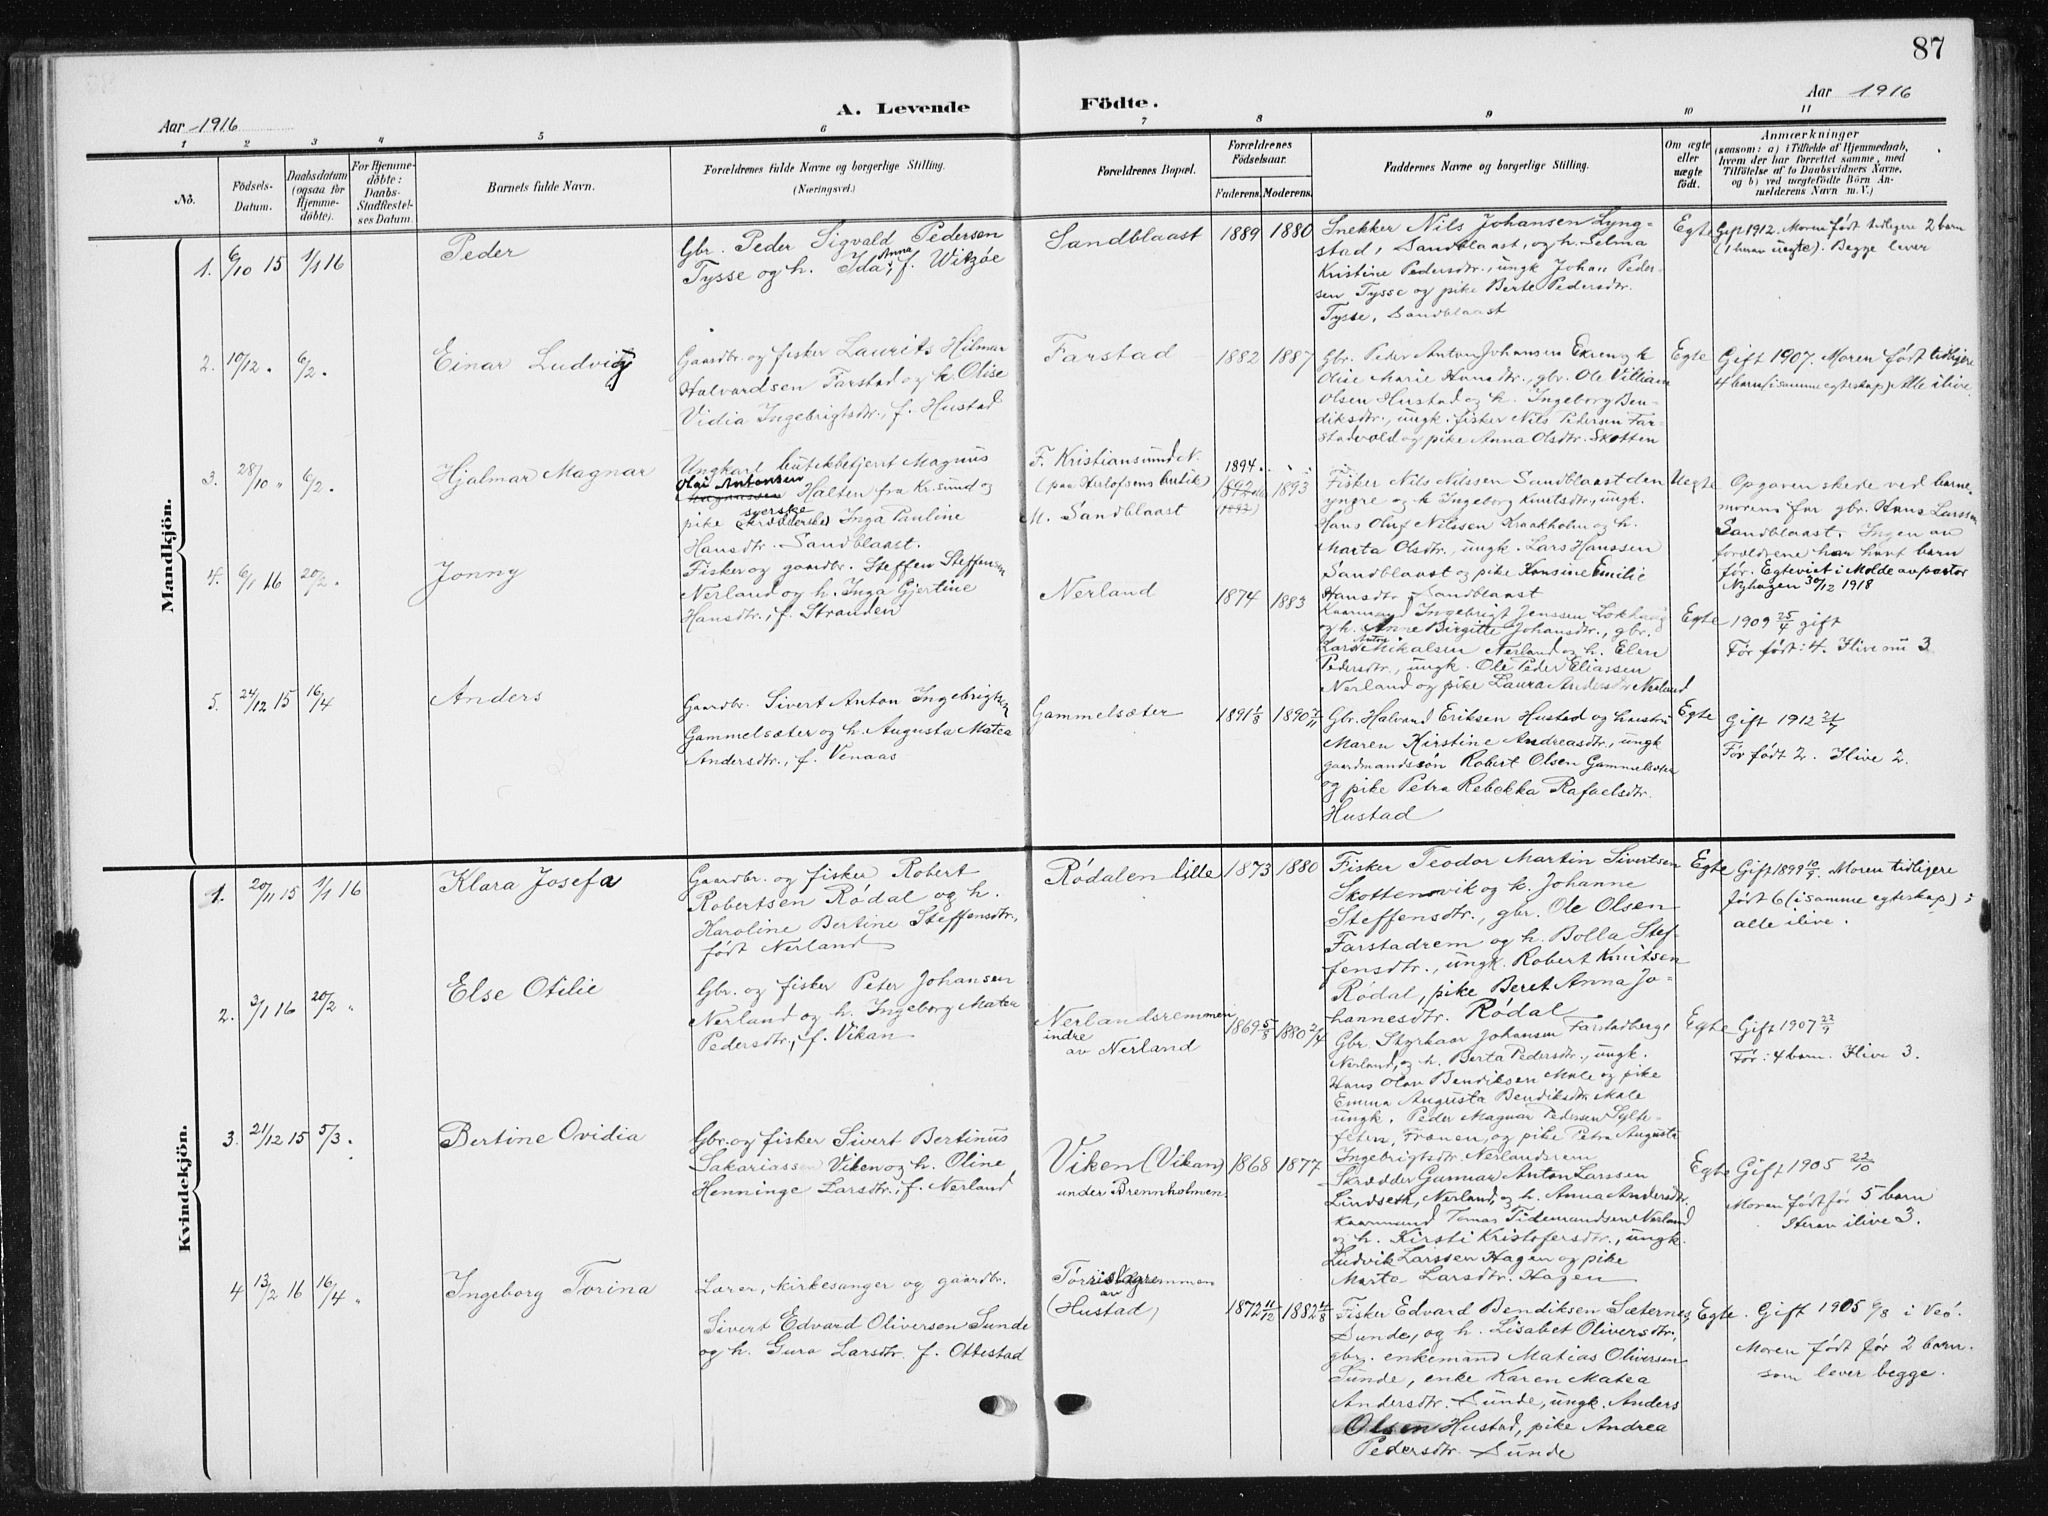 87
Aar 1916
A. Levende Födte.
Aar 1916
1 2 3 4 5 6 7 8 9 10 11
No.
Födsels-
Datum.
Daabsdatum
(ogsaa for
Hjemme-
døbte).
For Hjemme-
døbte:
Daabs-
Stadfæstel-
ses Datum.
Barnets fulde Navn.
Forældrenes fulde Navne og borgerlige Stilling.
(Næringsvei.)
Forældrenes Bopæl.
Forældrenes
Fødselsaar.
Faderens. Moderens.
Faddernes Navne og borgerlige Stilling.
Om ægte
eller
uægte
født.
Anmærkninger
(saasom: a) i Tilfælde af Hjemmedaab,
hvem der har forrettet samme, med
Tilföielse af to Daabsvidners Navne,
og b) ved uægtefödte Börn An-
melderens Navn m. V.)
Mandkjön.
1. 6/10 15 1/1 16 Peder
Gbr. Peder Sigvald Pedersen
Tysse og h. Ida Anna, f. Witzøe
Sandblaast 1889 1880
Snekker Nils Johansen Lyng-
stad, Sandblaast, og h. Selma
Kristine Pedersdtr., ungk Johan Peder-
sen Tysse og pike Berte Pedersdtr.
Tysse, Sandblaast
Egte
Gift 1912. Moren født tidligere 2 barn
(1 barn uegte). Begge lever
2. 10/12 " 6/2 " Einar Ludvig
Gaardbr. og fisker Laurits Hilmar
Halvardsen Farstad og h. Olise
Vidia Ingebrigtsdtr., f. Hustad
Farstad 1882 1887
Gbr. Peder Anton Johansen Exren og h
Oline Marie Hansdtr., gbr. Ole Villiam
Olsen Hustad og h. Ingeborg Ben-
diksdtr., ungk. fisker Nils Petersen Far-
stadvold og pike Anna Olsdtr. Skotten
Egte
Gift 1907. Moren født tidligere
4 barn (i samme egteskap) Alle ilive.
3. 28/10 " 6/2 " Hjalmar Magnar
Ungkarl butikbetjent Magnus
Olai Antonsen
Halten fra Kr.sund og
pike syerske Inga Pauline
Hansdtr. Sandblaast.
F. Kristiansund N.
(paa Herlofsens butik)
M. Sandblaast
1894 1892 1893
Fisker Nils Nilssen Sandblaast den
yngre og h Ingeborg Knutsdtr., ungk.
Hans Oluf Nilssen Kraakholm og h.
Marta Olsdtr., ungk. Lars Hanssen
Sandblaast og pike Hansine Emilie
Hansdtr Sandblaast
Uegte
Opgaven skede ved barne-
moren for gbr. Hans Larssen
Sandblaast. Ingen av
forældrene har havt barn
før. Egteviet i Molde av pastor
Nyhagen 30/12 1918
4. 6/1 16 20/2 " Jonny
Fisker og gaardbr. Steffen Steffensen
Nerland og h. Inga Gjertine
Hansdtr., f. Stranden
Nerland 1874 1883
Kaarmand Ingebrigt Jenssen Lokhaug
og h. Anne Birgitte Johansdtr., gbr.
Lars Anton Mikalsen Nerland og h. Elen
Pedersdtr., ungk. Ole Peder Eliassen
Nerland og pike Laura Andersdtr Nerland
Egte
1909 25/4 gift
Før født: 4. Ilive nu 3
5. 24/12 15 16/4 Anders
Gaardbr. Sivert Anton Ingebrigtsen
Gammelsæter og h. Augusta Matea
Andersdtr., f. Venaas
Gammelsæter 1891 1/8 1890 7/11
Gbr. Halvard Eriksen Hustad og hustru
Maren Kirstine Andreasdtr., ungk
gaardmandssøn Robert Olsen Gammelsæter
og pike Petra Rebekka Rafaelsdtr.
Hustad
Egte
Gift 1912 21/7
Før født 2. Ilive 2.
Kvindekjön.
1. 20/11 15 1/1 16 Klara Josefa
Gaardbr. og fisker Robert
Robertsen Rødal og h.
Karoline Bertine Steffensdtr,
født Nerland
Rødalen lille 1873 1880
Fisker Teodor Martin Sivertsen
Skottenvik og h. Johanne
Steffensdtr., gbr. Ole Olsen
Farstadrem og h. Bolla Stef-
fensdtr., ungk. Robert Knutsen
Rødal, pike Beret Anna Jo-
hannesdtr. Rødal
Egte
Gift 1899 10/9. Moren tidligere
født 6 (i samme egteskap);
alle ilive.
2. 3/1 16 20/2 " Else Otilie
Gbr. og fisker Peter Johansen
Nerland og h. Ingeborg Matea
Pedersdtr., f. Vikan
Nerlandsremmen
indre
av Nerland
1869 5/8 1880 2/4
Gbr. Styrkaar Johansen Farstadberg
Nerland, og h. Berta Pedersdtr., ungk.
Hans Olav Bendiksen Male og pike
Emma Augusta Bendiksdtr Male
ungk. Peder Magnar Pedersen Sylte-
feten, Frænen, og pike Petra Augusta
Ingebrigtsdtr. Nerlandsrem
Egte
Gift 1907 22/9
Før: 4 barn. Ilive 3.
3. 21/12 15 5/3 " Bertine Ovidia
Gbr. og fisker Sivert Bertinus
Sakariassen Viken og h. Oline
Henninge Larsdtr., f. Nerland
Viken (Vikan)
under Brennholmen
1868 1877
Skrædder Gunnar Anton Larssen
Lindseth, Nerland, og h. Anna Andersdtr.
Kaarmand Tomas Tidemandsen Nerland
og h. Kirsti Kristofersdtr., ungk.
Ludvik Larssen Hagen og pike
Marta Larsdtr. Hagen
Egte
Gift 1905 22/10
Moren født før 5 barn
Herav ilive 3.
4 13/2 16 16/4 " Ingeborg Torina
Lærer, kirkesanger og gaardbr.
Sivert Edvard Oliversen Sunde
og h. Guro Larsdtr. f. Ottestad
av
(Hustad)
1872 11/12 1882 4/8
Fisker Edvard Bendiksen Sæternes
Sunde, og h. Lisabet Oliversdtr,
gbr. enkemand Matias Oliversen
Sunde, enke Karen Matea
Andersdtr. Sunde, ungk. Anders
Olsen Hustad, pike Andrea
Pedersdtr. Sunde
Egte.
Gift 1905 6/8 i Veø.
Moren født før 2 barn.
som lever begge.